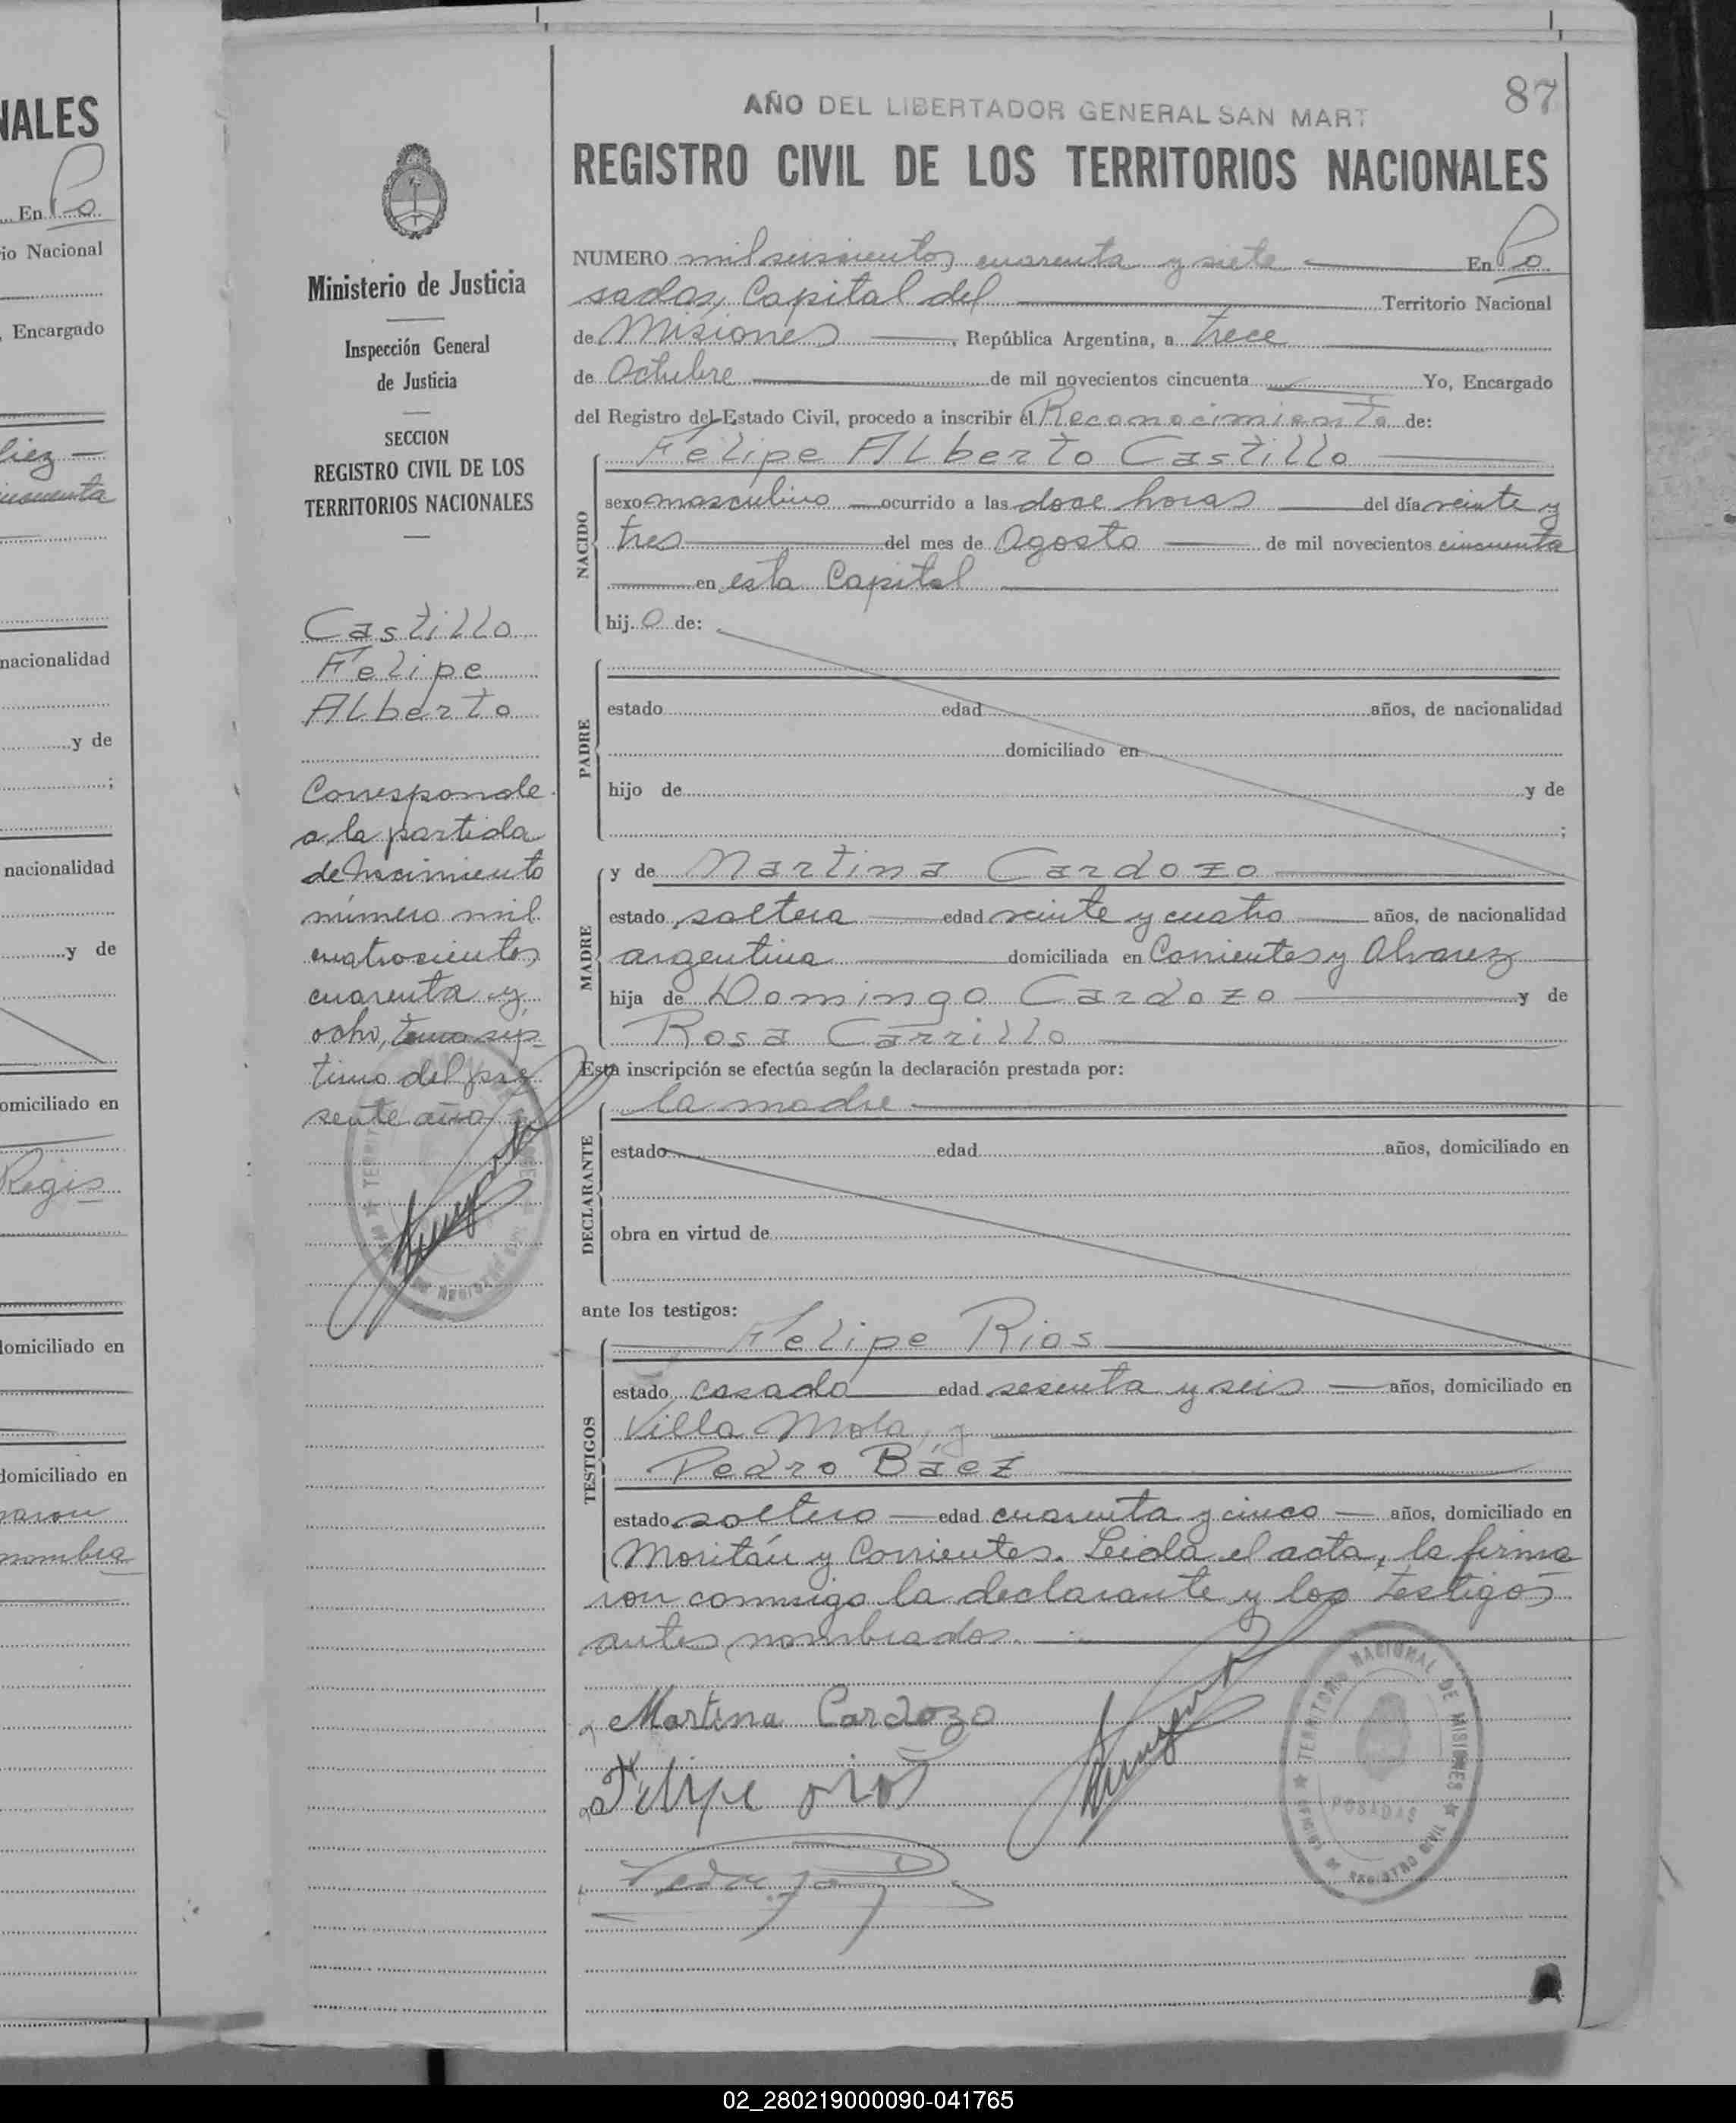 NALES
En Po
io Nacional
, Encargado
diez
cincuenta
nacionalidad
y de
;
nacionalidad
y de
omiciliado en
Regis
domiciliado en
domiciliado en
maron
nombra
Ministerio de Justicia
Inspección General
de Justicia
SECCION
REGISTRO CIVIL DE LOS
TERRITORIOS NACIONALES
Castillo
Felipe
Alberto
Corresponde
a la partida
de Nacimiento
número mil
cuatrocientos
cuarenta y
ocho, tomo sep-
timo del pre
sente año
87
AÑO DEL LIBERTADOR GENERAL SAN MART
REGISTRO CIVIL DE LOS TERRITORIOS NACIONALES
NUMERO mil seiscientos cuarenta y siete En Po
sadas, Capital del Territorio Nacional
de Misiones, República Argentina, a trece
de Octubre de mil novecientos cincuenta Yo, Encargado
del Registro del Estado Civil, procedo a inscribir el Reconocimiento de:
Felipe Alberto Castillo
NACIDO
sexo masculino ocurrido a las doce horas del día veinte y
tres del mes de Agosto de mil novecientos cincuenta
en esta Capital
hijo de:
PADRE
estado edad años, de nacionalidad
domiciliado en
hijo de y de
;
MADRE
y de Martina Cardozo
estado soltera edad veinte y cuatro años, de nacionalidad
argentina domiciliada en Corrientes y Alvarez
hija de Domingo Cardozo y de
Rosa Carrillo
Esta inscripción se efectúa según la declaración prestada por:
DECLARANTE
la madre
estado edad años, domiciliado en
obra en virtud de
ante los testigos:
TESTIGOS
Felipe Rios
estado casado edad sesenta y seis años, domiciliado en
Villa Mola, y
Pedro Báez
estado soltero edad cuarenta y cinco años, domiciliado en
Moritán y Corrientes. Leida el acta, la firma
ron conmigo la declarante y los testigos
antes nombrados.
Martina Cardozo
Felipe rios
TERRITORIO NACIONAL DE MISIONES
POSADAS
OFICINA DE REGISTRO CIVIL
02_280219000090-041765